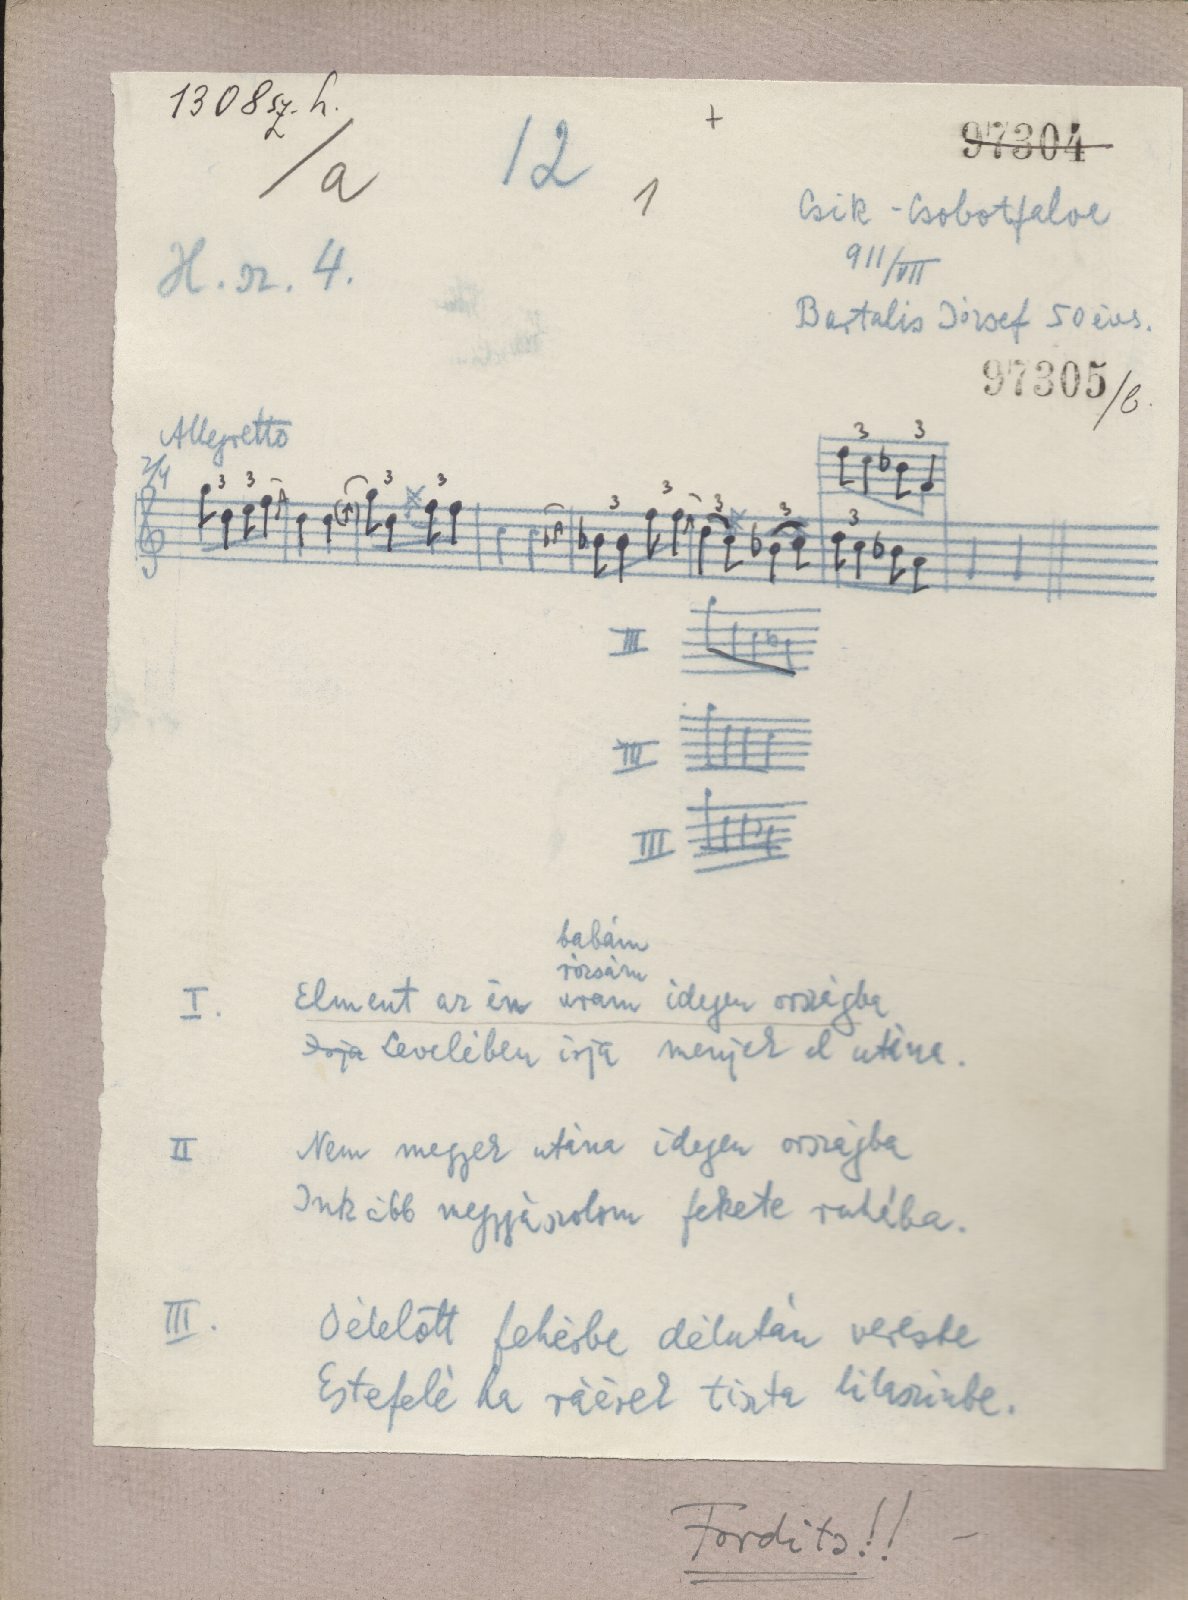 1308 sz. h.
/a
12
+
1
97304
Csik-Csobotfalva
911/VII
H. sz. 4.
Bartalis József 50 éves.
97305/b.
Allegretto
2/4
3 3 3 3 3 3 3 3 3 3 3
III
III
III
babám
rózsám
I. Elment az én uram idegen országba
Irja Levelében irja menjek el utána.
II Nem megyek utána idegen országba
Inkább meggyászolom fekete ruhába.
III. Délelőtt fehérbe délután veresbe
Estefelé ha ráérek tiszta lilaszinbe.
Fordits!! –